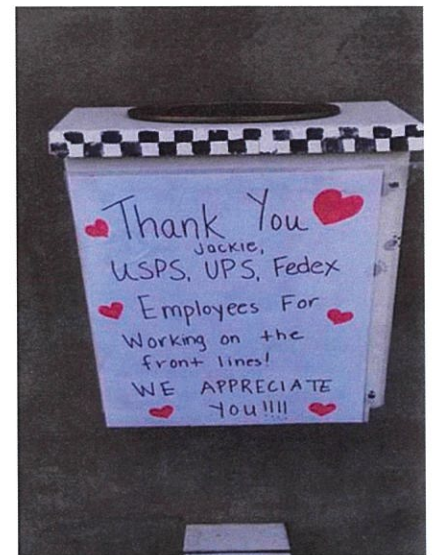 Thank You
Jackie,
USPS, UPS, Fedex
Employees For
Working on the
front lines!
WE APPRECIATE
You!!!!